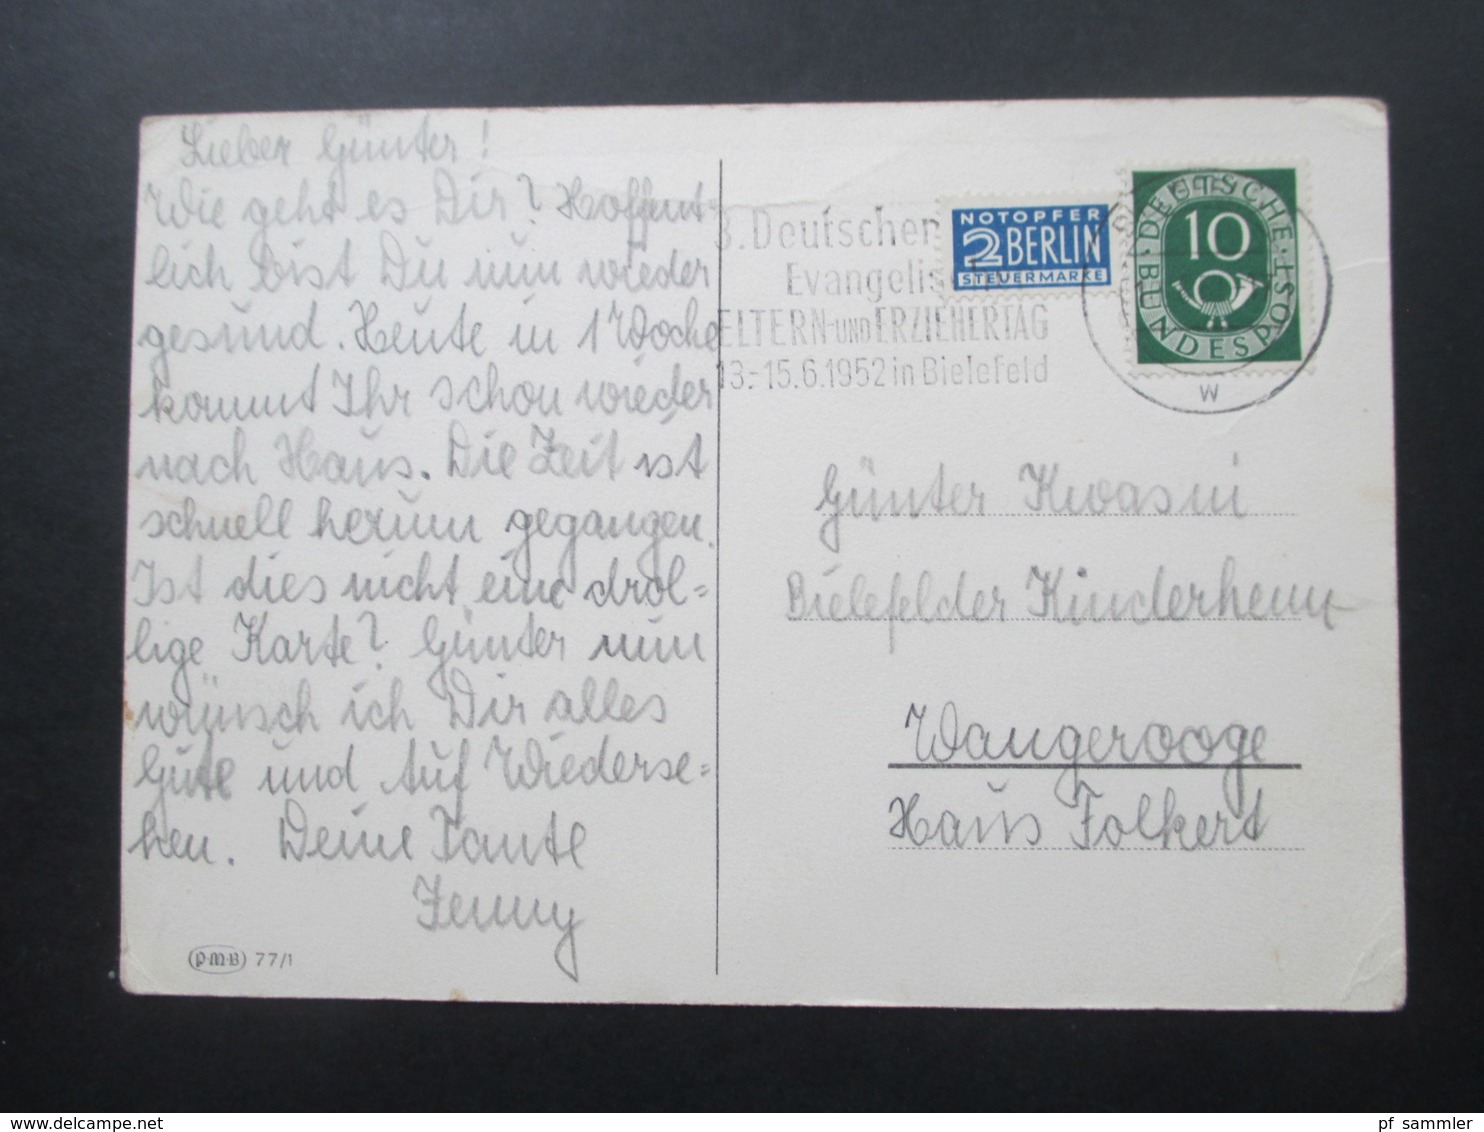 Lieber Günter!
Wie geht es Dir? Hoffent-
lich bist Du nun wieder
gesund. Heute in 1 Woche
kommt Ihr schon wieder
nach Haus. Die Zeit ist
schnell herum gegangen.
Ist dies nicht eine drol=
lige Karte? Günter nun
wünsch ich Dir alles
Gute und Auf Wiederse=
hen. Deine Tante
Jenny
P·M·B 77/1
3. Deutscher
Evangelis
ELTERN-UND ERZIEHERTAG
13.-15.6.1952 in Bielefeld
NOTOPFER
2 BERLIN
STEUERMARKE
DEUTSCHE
BUNDESPOST
10
w
Günter Kwasni
Bielefelder Kinderheim
Wangerooge
Haus Folkert
delcampe.net
pf_sammler